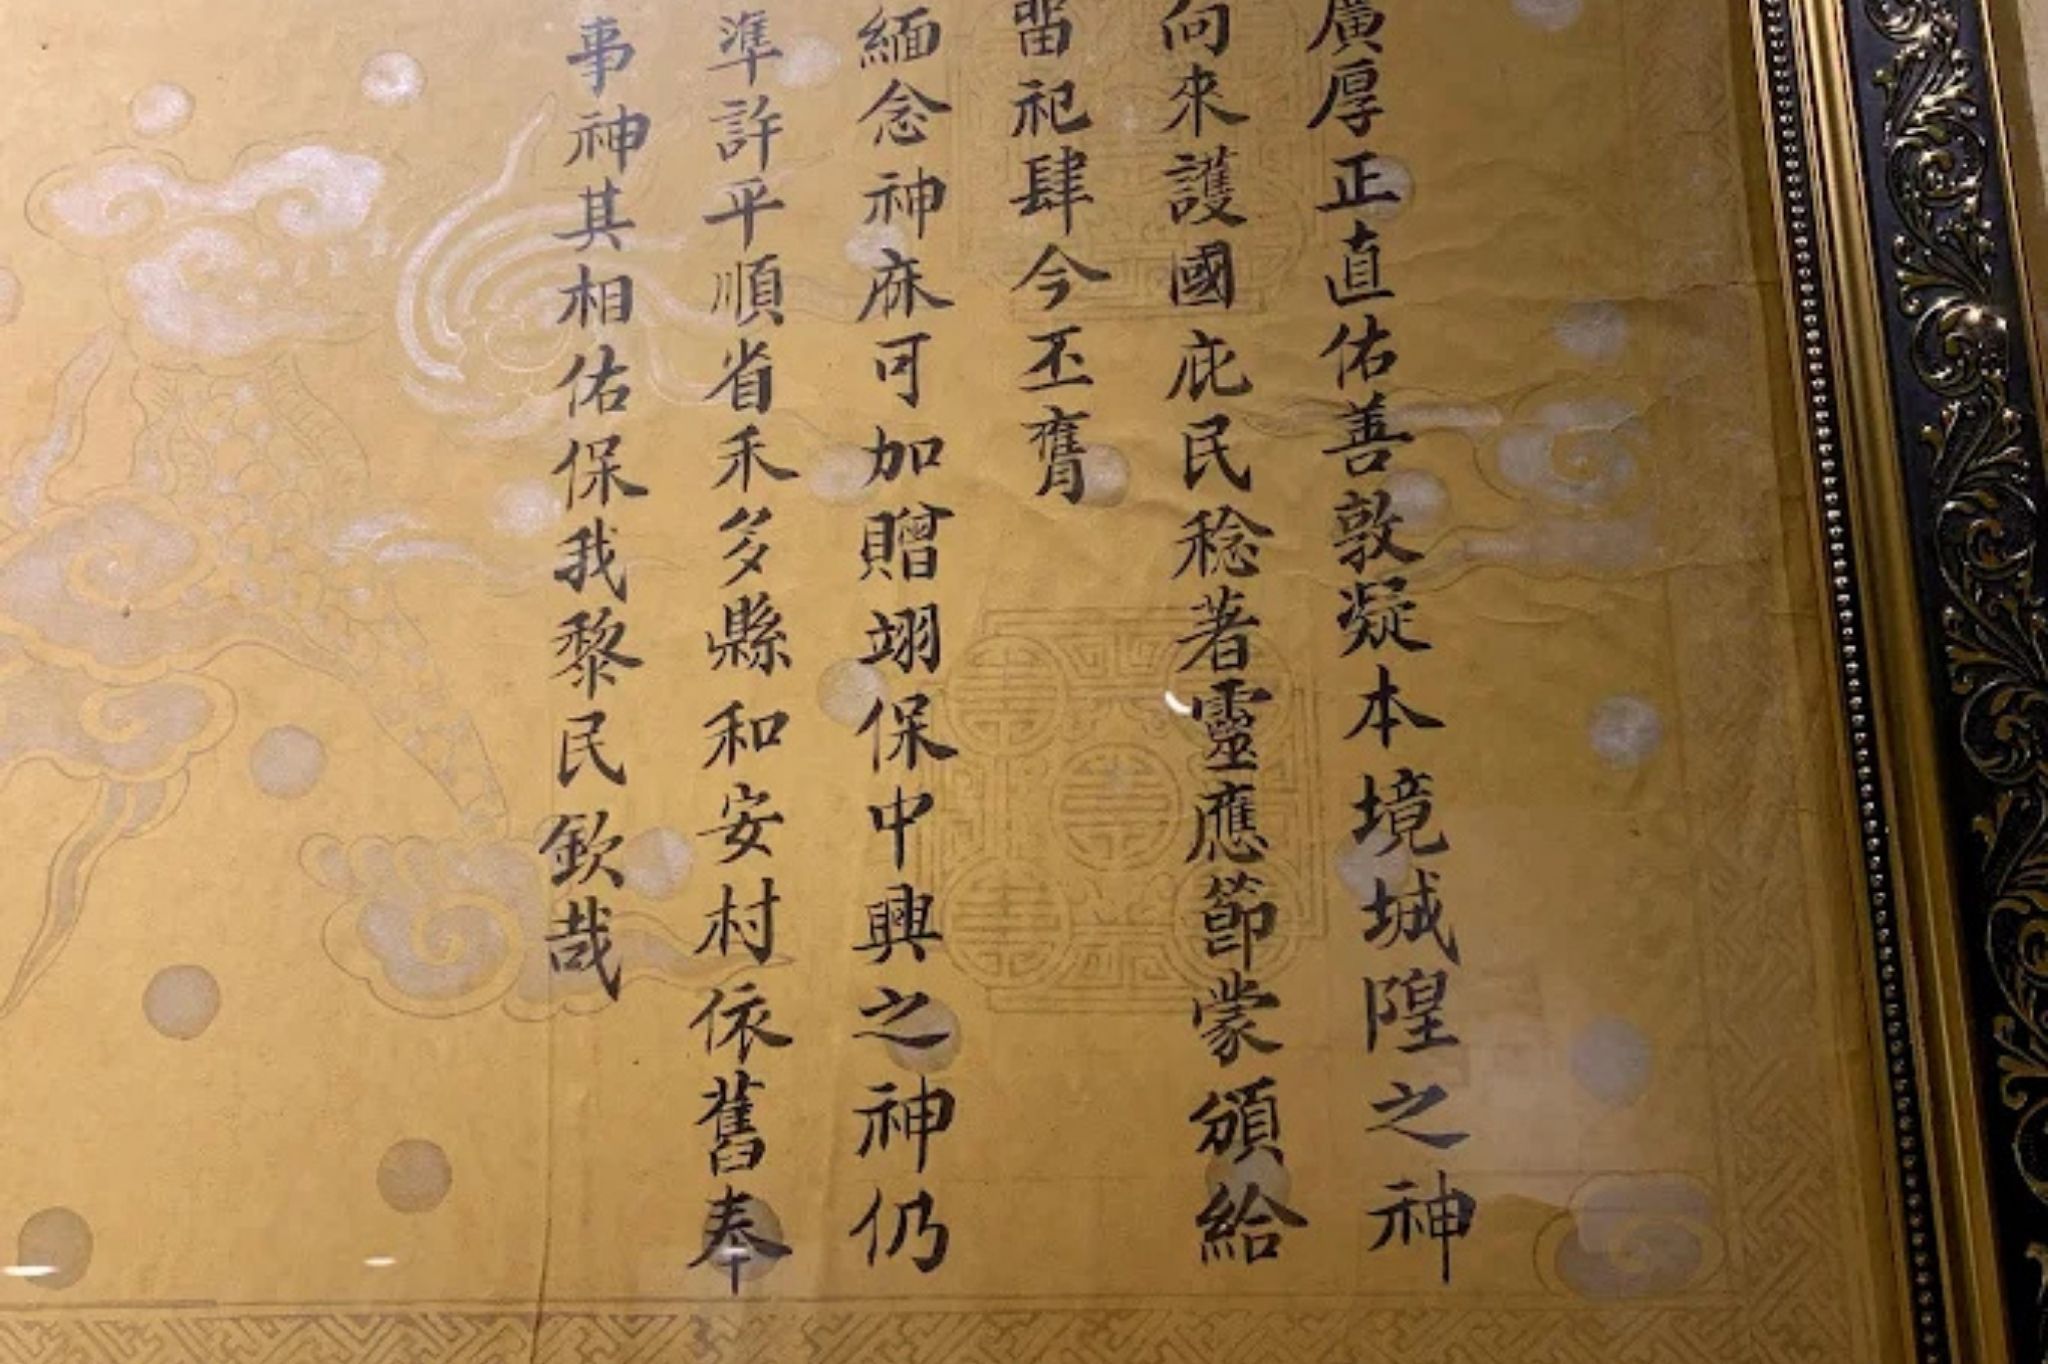 廣厚正直佑善敦凝本境城隍之神
向來護國庇民稔著靈應節蒙頒給
畱祀肆今丕膺
緬念神庥可加贈翊保中興之神仍
準許平順省禾多縣和安村依舊奉
事神其相佑保我黎民欽哉